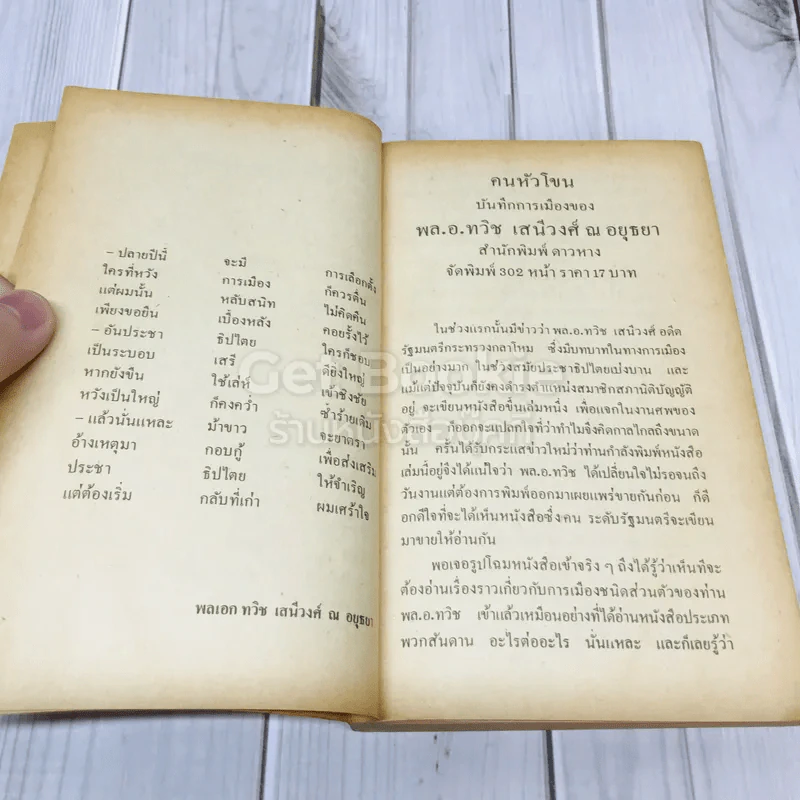 – ปลายปีนี้ จะมี การเลือกตั้ง
ใครที่หวัง การเมือง ก็ควรตื่น
แต่ผมนั้น หลับสนิท ไม่คิดคืน
เพียงขอยืน เบื้องหลัง คอยรั้งไว้
– อันประชา ธิปไตย ใครก็ชอบ
เป็นระบอบ เสรี ดียิ่งใหญ่
หากยังขืน ใช้เล่ห์ เข้าชิงชัย
หวังเป็นใหญ่ ก็คงคว่ำ ซ้ำร้ายเดิม
– แล้วนั่นแหละ ม้าขาว จะยาตรา
อ้างเหตุมา กอบกู้ เพื่อส่งเสริม
ประชา ธิปไตย ให้จำเริญ
แต่ต้องเริ่ม กลับที่เก่า ผมเศร้าใจ
พลเอก ทวิช เสนีวงศ์ ณ อยุธยา
คนหัวโขน
บันทึกการเมืองของ
พล.อ.ทวิช เสนีวงศ์ ณ อยุธยา
สำนักพิมพ์ ดาวหาง
จัดพิมพ์ 302 หน้า ราคา 17 บาท
ในช่วงแรกนั้นมีข่าวว่า พล.อ.ทวิช เสนีวงศ์ อดีต
รัฐมนตรีกระทรวงกลาโหม ซึ่งมีบทบาทในทางการเมือง
เป็นอย่างมาก ในช่วงสมัยประชาธิปไตยเบ่งบาน และ
แม้แต่ปัจจุบันก็ยังคงดำรงตำแหน่งสมาชิกสภานิติบัญญัติ
อยู่ จะเขียนหนังสือขึ้นเล่มหนึ่ง เพื่อแจกในงานศพของ
ตัวเอง ก็ออกจะแปลกใจที่ว่าทำไมจึงคิดกาลไกลถึงขนาด
นั้น ครั้นได้รับกระแสข่าวใหม่ว่าท่านกำลังพิมพ์หนังสือ
เล่มนี้อยู่จึงได้แน่ใจว่า พล.อ.ทวิช ได้เปลี่ยนใจไม่รอจนถึง
วันงานแต่ต้องการพิมพ์ออกมาเผยแพร่ขายกันก่อน ก็ดี
อกดีใจที่จะได้เห็นหนังสือซึ่งคน ระดับรัฐมนตรีจะเขียน
มาขายให้อ่านกัน
พอเจอรูปโฉมหนังสือเข้าจริง ๆ ถึงได้รู้ว่าเห็นทีจะ
ต้องอ่านเรื่องราวเกี่ยวกับการเมืองชนิดส่วนตัวของท่าน
พล.อ.ทวิช เข้าแล้วเหมือนอย่างที่ได้อ่านหนังสือประเภท
พวกสันดาน อะไรต่ออะไร นั่นแหละ และก็เลยรู้ว่า